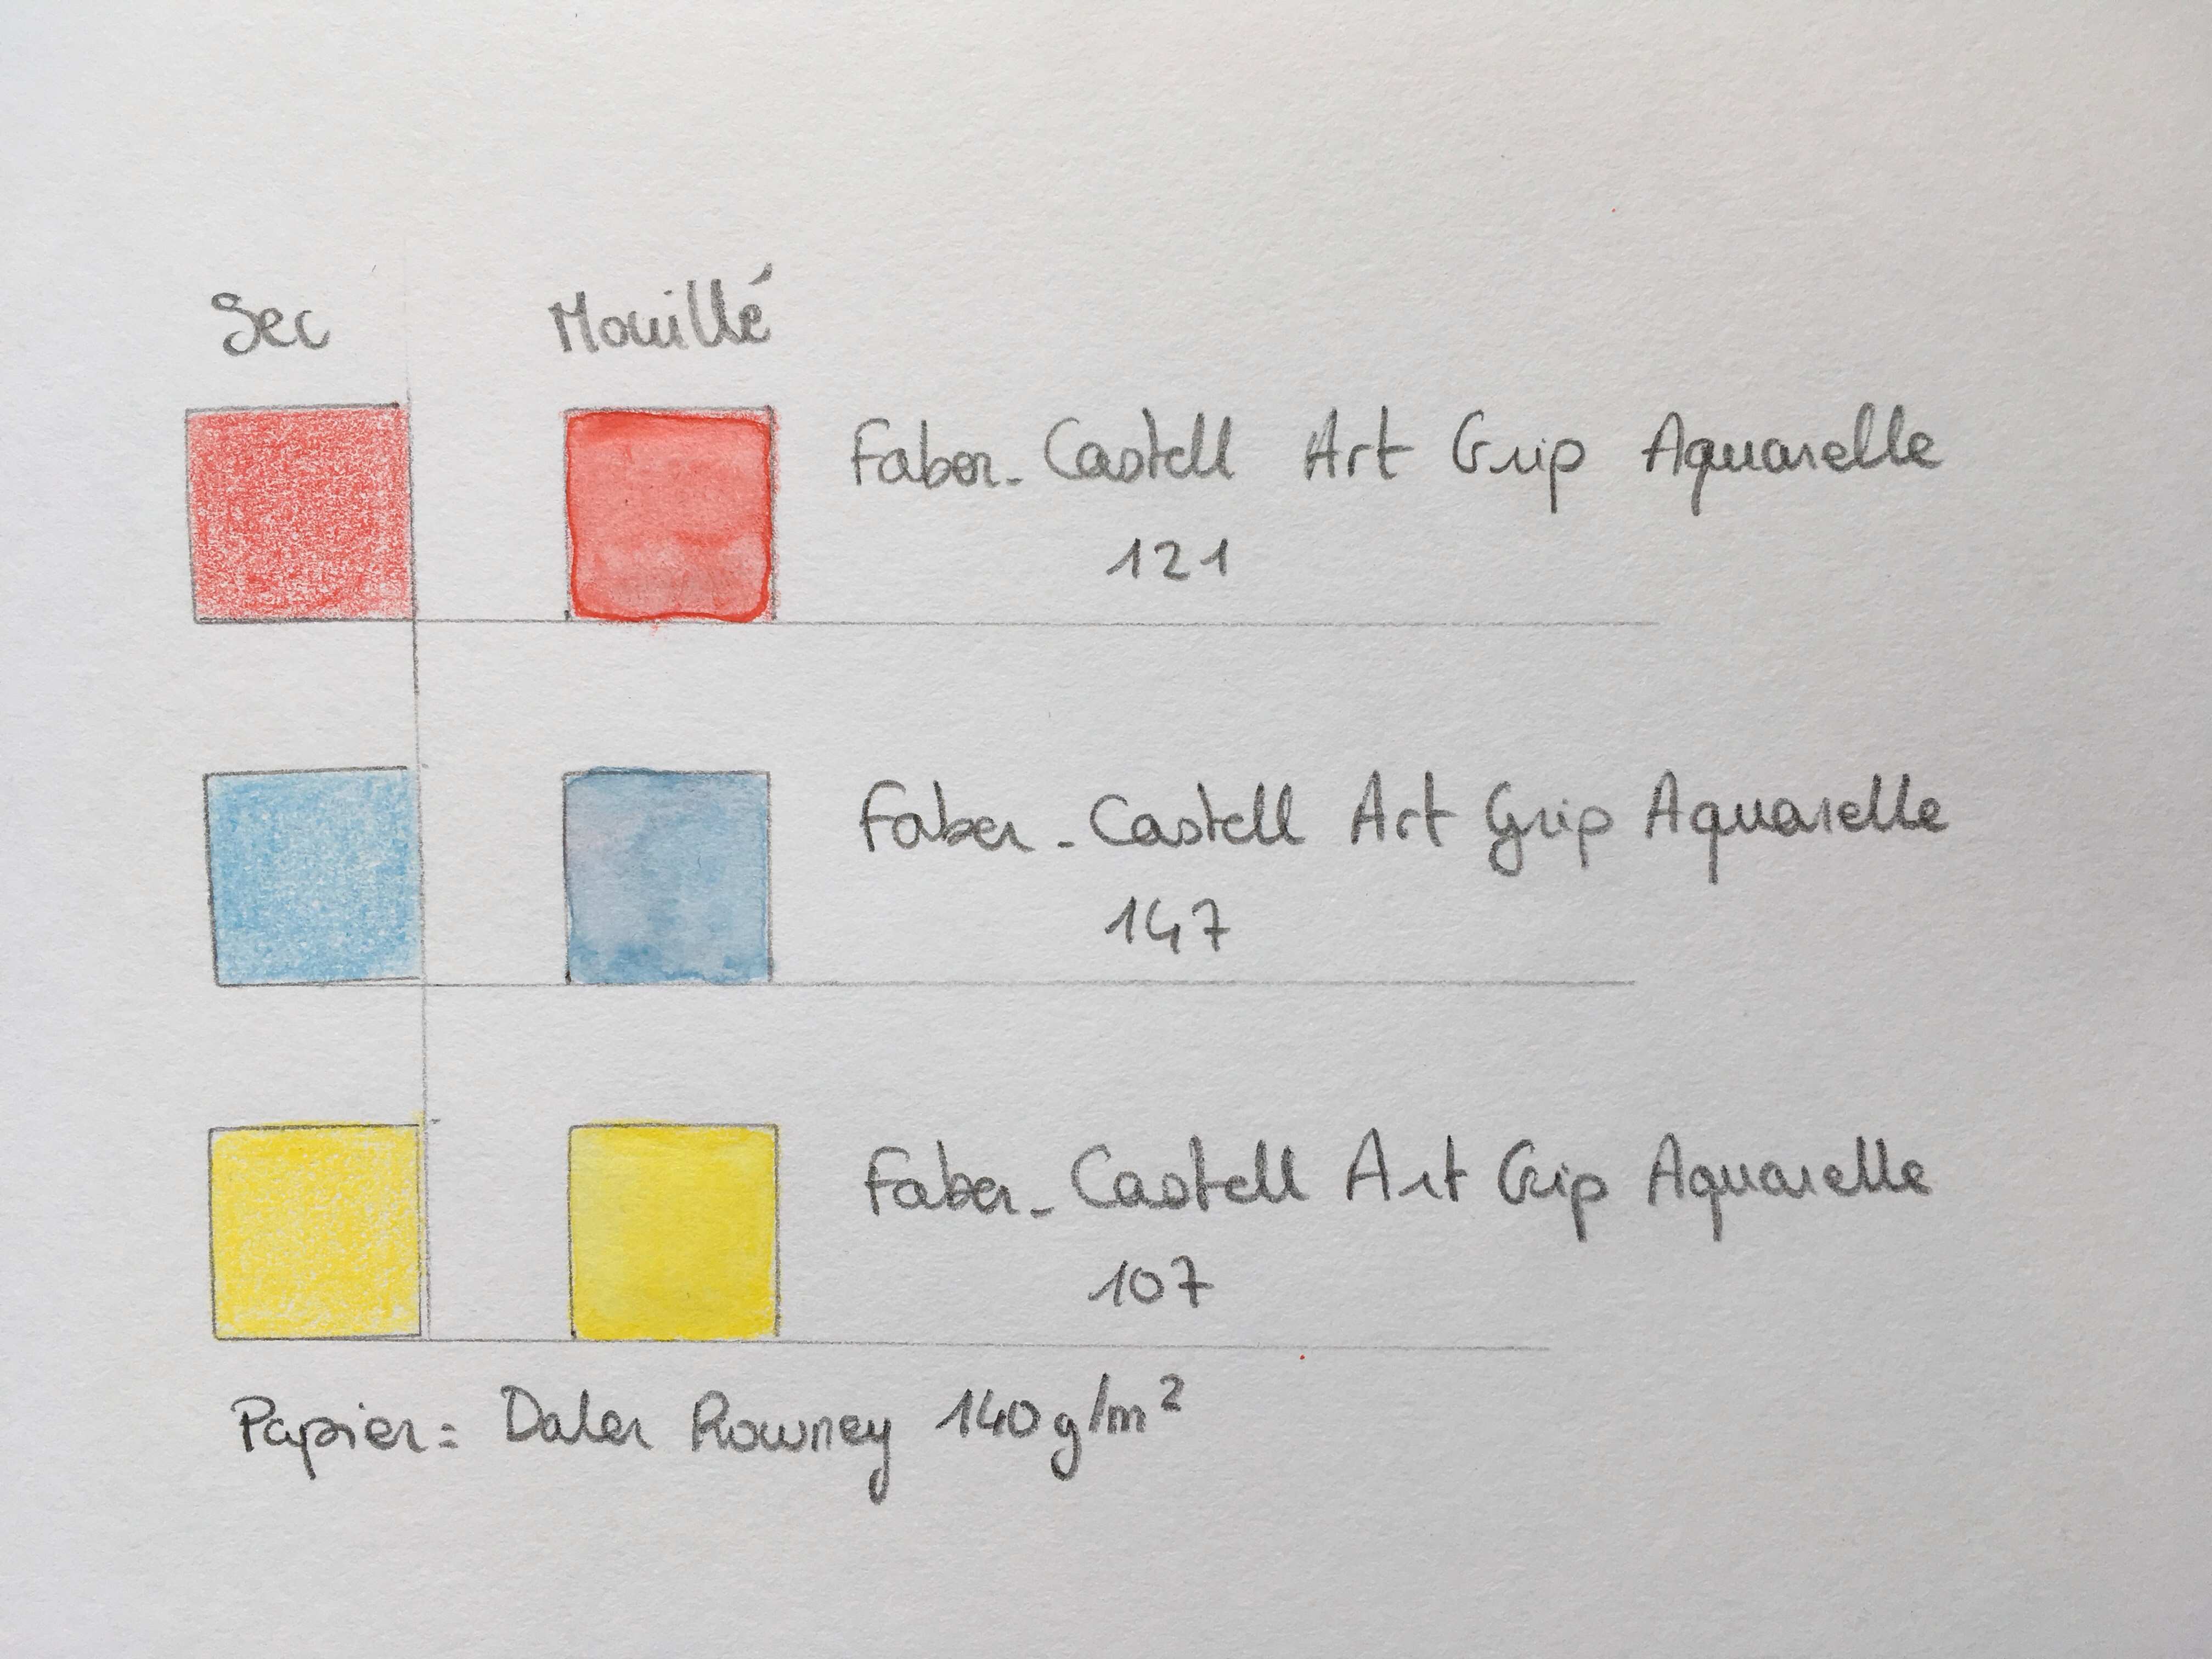 Sec Mouillé
Faber-Castell Art Grip Aquarelle
121
Faber-Castell Art Grip Aquarelle
147
Faber-Castell Art Grip Aquarelle
107
Papier: Daler Rowney 140g/m²